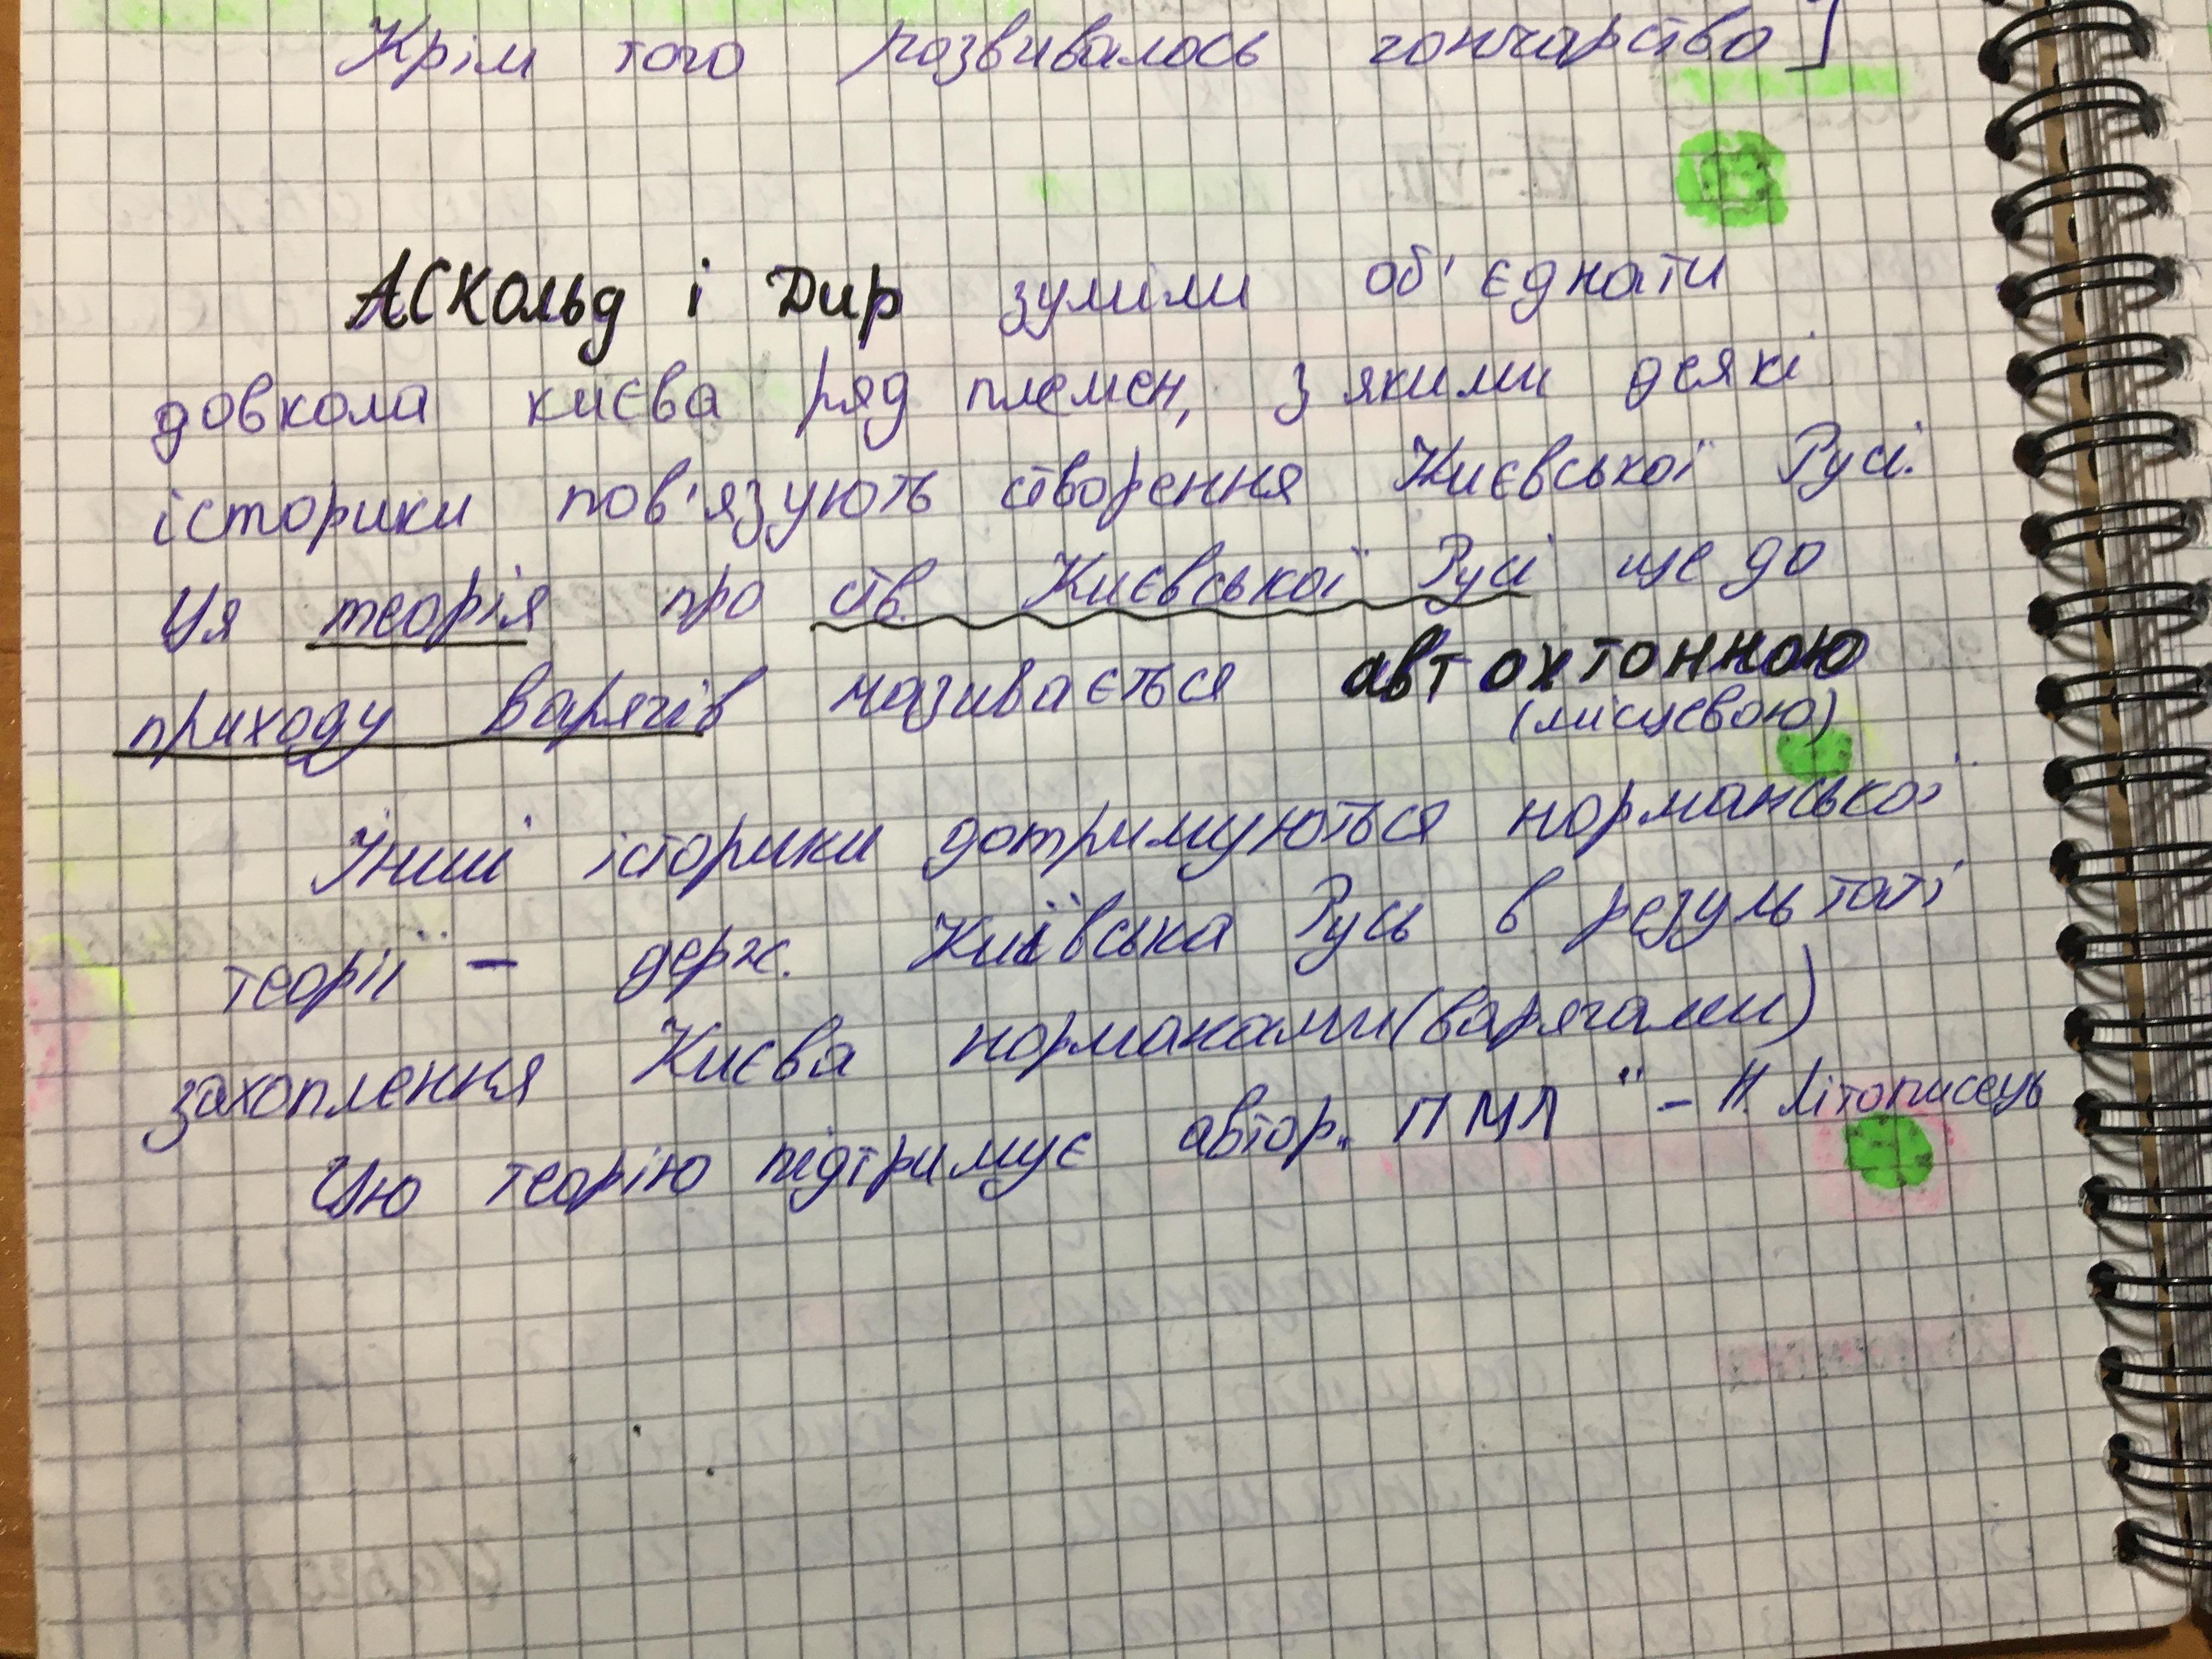 Крім того розвивалось гончарство]
АСКольд і Дир зуміли об'єднати
довкола києва ряд племен, з якими деякі
історики пов'язують створення Києвської Русі.
Ця теорія про ств. Києвської Русі ще до
приходу варягів називається автохтонною
(місцевою)
Інші історики дотримуються норманської
теорії – держ. Київська Русь в результаті
захоплення Києва норманами (варягами)
Цю теорію підтримує автор „ПМЛ" – Н. Літописець